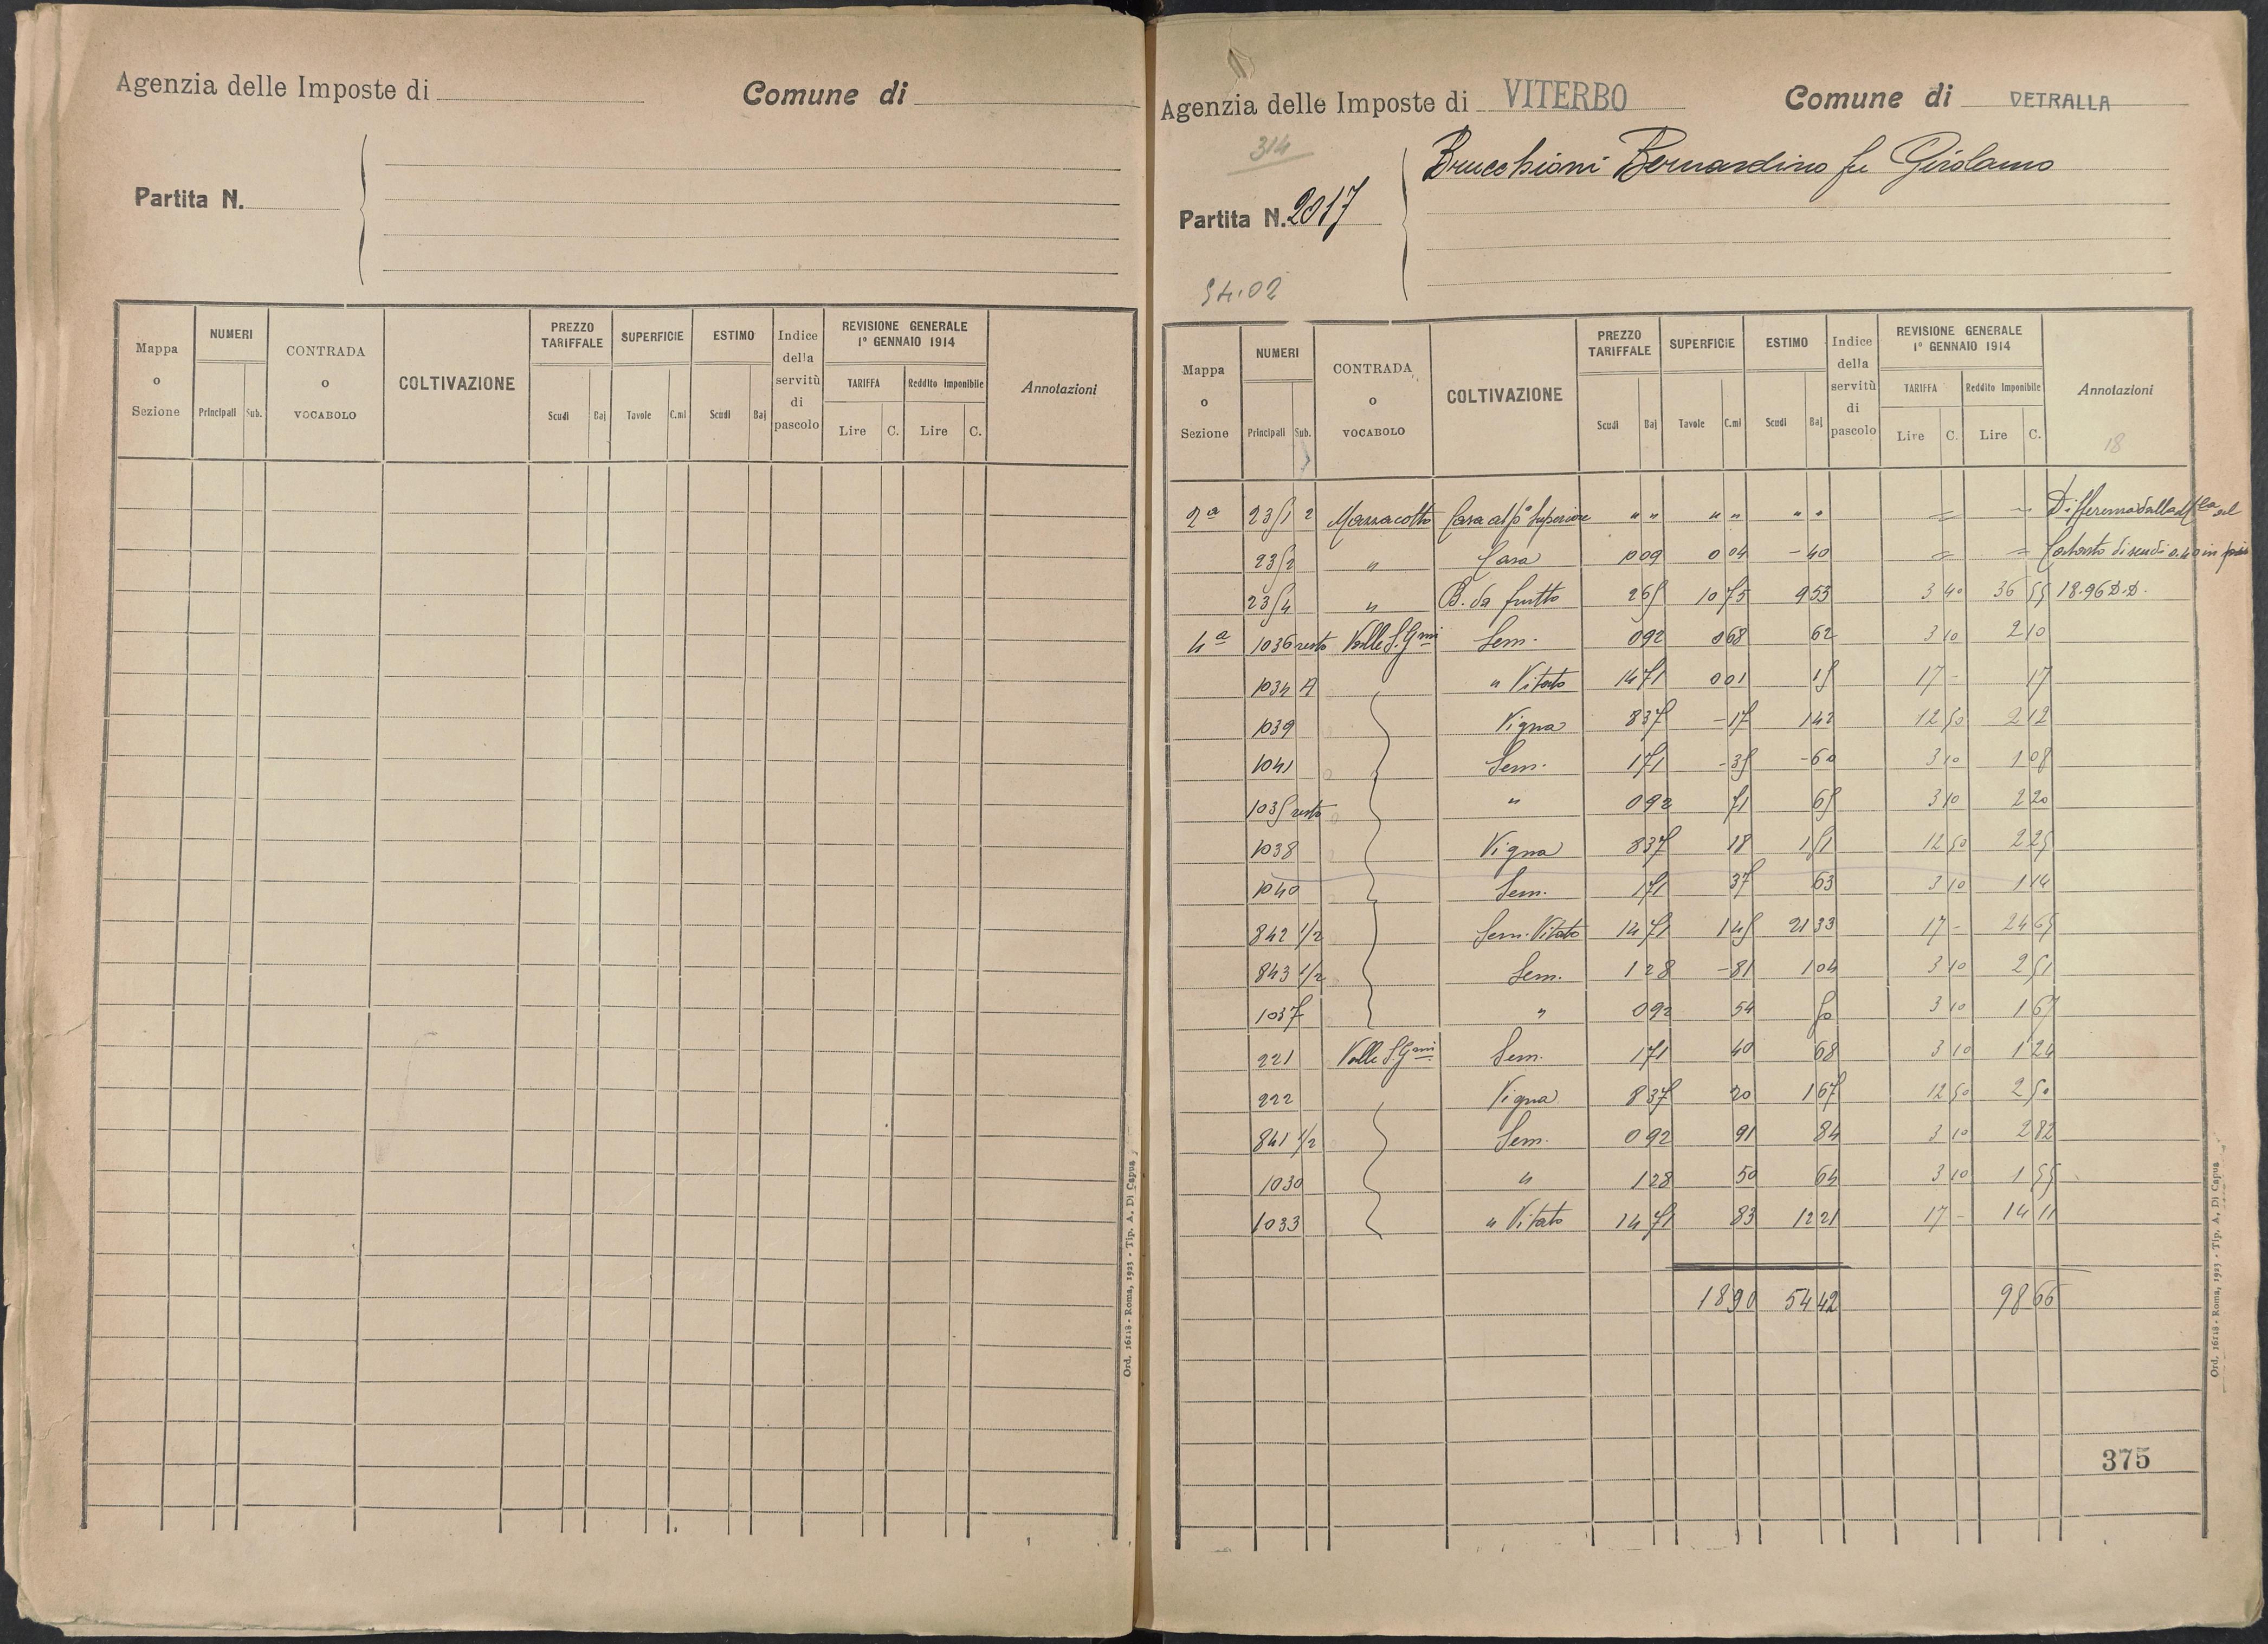 Agenzia delle Imposte di
Comune di
Partita N.
Mappa o Sezione
NUMERI
Principali Sub.
CONTRADA o VOCABOLO
COLTIVAZIONE
PREZZO TARIFFALE
Scudi Baj
SUPERFICIE
Tavole C.mi
ESTIMO
Scudi Baj
Indice della servitù di pascolo
REVISIONE GENERALE 1° GENNAIO 1914
TARIFFA
Lire C.
Reddito Imponibile
Lire C.
Annotazioni
Ord. 16118 - Roma, 1923 - Tip. A. Di Capua
Agenzia delle Imposte di VITERBO
Comune di VETRALLA
314
Brucchioni Bernardino fu Girolamo
Partita N. 2017
54.02
Mappa o Sezione
NUMERI
Principali Sub.
CONTRADA o VOCABOLO
COLTIVAZIONE
PREZZO TARIFFALE
Scudi Baj
SUPERFICIE
Tavole C.mi
ESTIMO
Scudi Baj
Indice della servitù di pascolo
REVISIONE GENERALE 1° GENNAIO 1914
TARIFFA
Lire C.
Reddito Imponibile
Lire C.
Annotazioni
18
2a 235/1 2 Mazzacotto Casa al p° Superiore " " " " " " = = Differenza dalla
235/2 " Casa 1009 0 04 - 40 = = Catasto di scudi 0.40 in più
235/4 " B. da frutto 265 10 75 9 53 3 40 36 55 18.96 D.D.
4a 1036 resto Valle S. Gnni Sem. 0 92 0 68 62 3 10 2 10
1034 A " Vitato 14 71 0 01 15 17 - 17
1039 Vigna 8 37 - 17 1 42 12 50 2 12
1041 Sem. 1 71 - 35 - 60 3 10 1 08
1035 resto " 0 92 71 65 3 10 2 20
1038 Vigna 8 37 18 1 51 12 50 2 25
1040 Sem. 1 71 37 63 3 10 1 14
842 1/2 Sem. Vitato 14 71 1 45 21 33 17 - 24 65
843 1/2 Sem. 1 28 - 81 1 04 3 10 2 51
1037 " 0 92 54 50 3 10 1 67
221 Valle S. Gnni Sem. 1 71 40 68 3 10 1 24
222 Vigna 8 37 20 1 67 12 50 2 50
841 1/2 Sem. 0 92 91 84 3 10 2 82
1030 " 1 28 50 64 3 10 1 55
1033 " Vitato 14 71 83 12 21 17 - 14 11
18 90 54 42 98 66
375
Ord. 16118 - Roma, 1923 - Tip. A. Di Capua